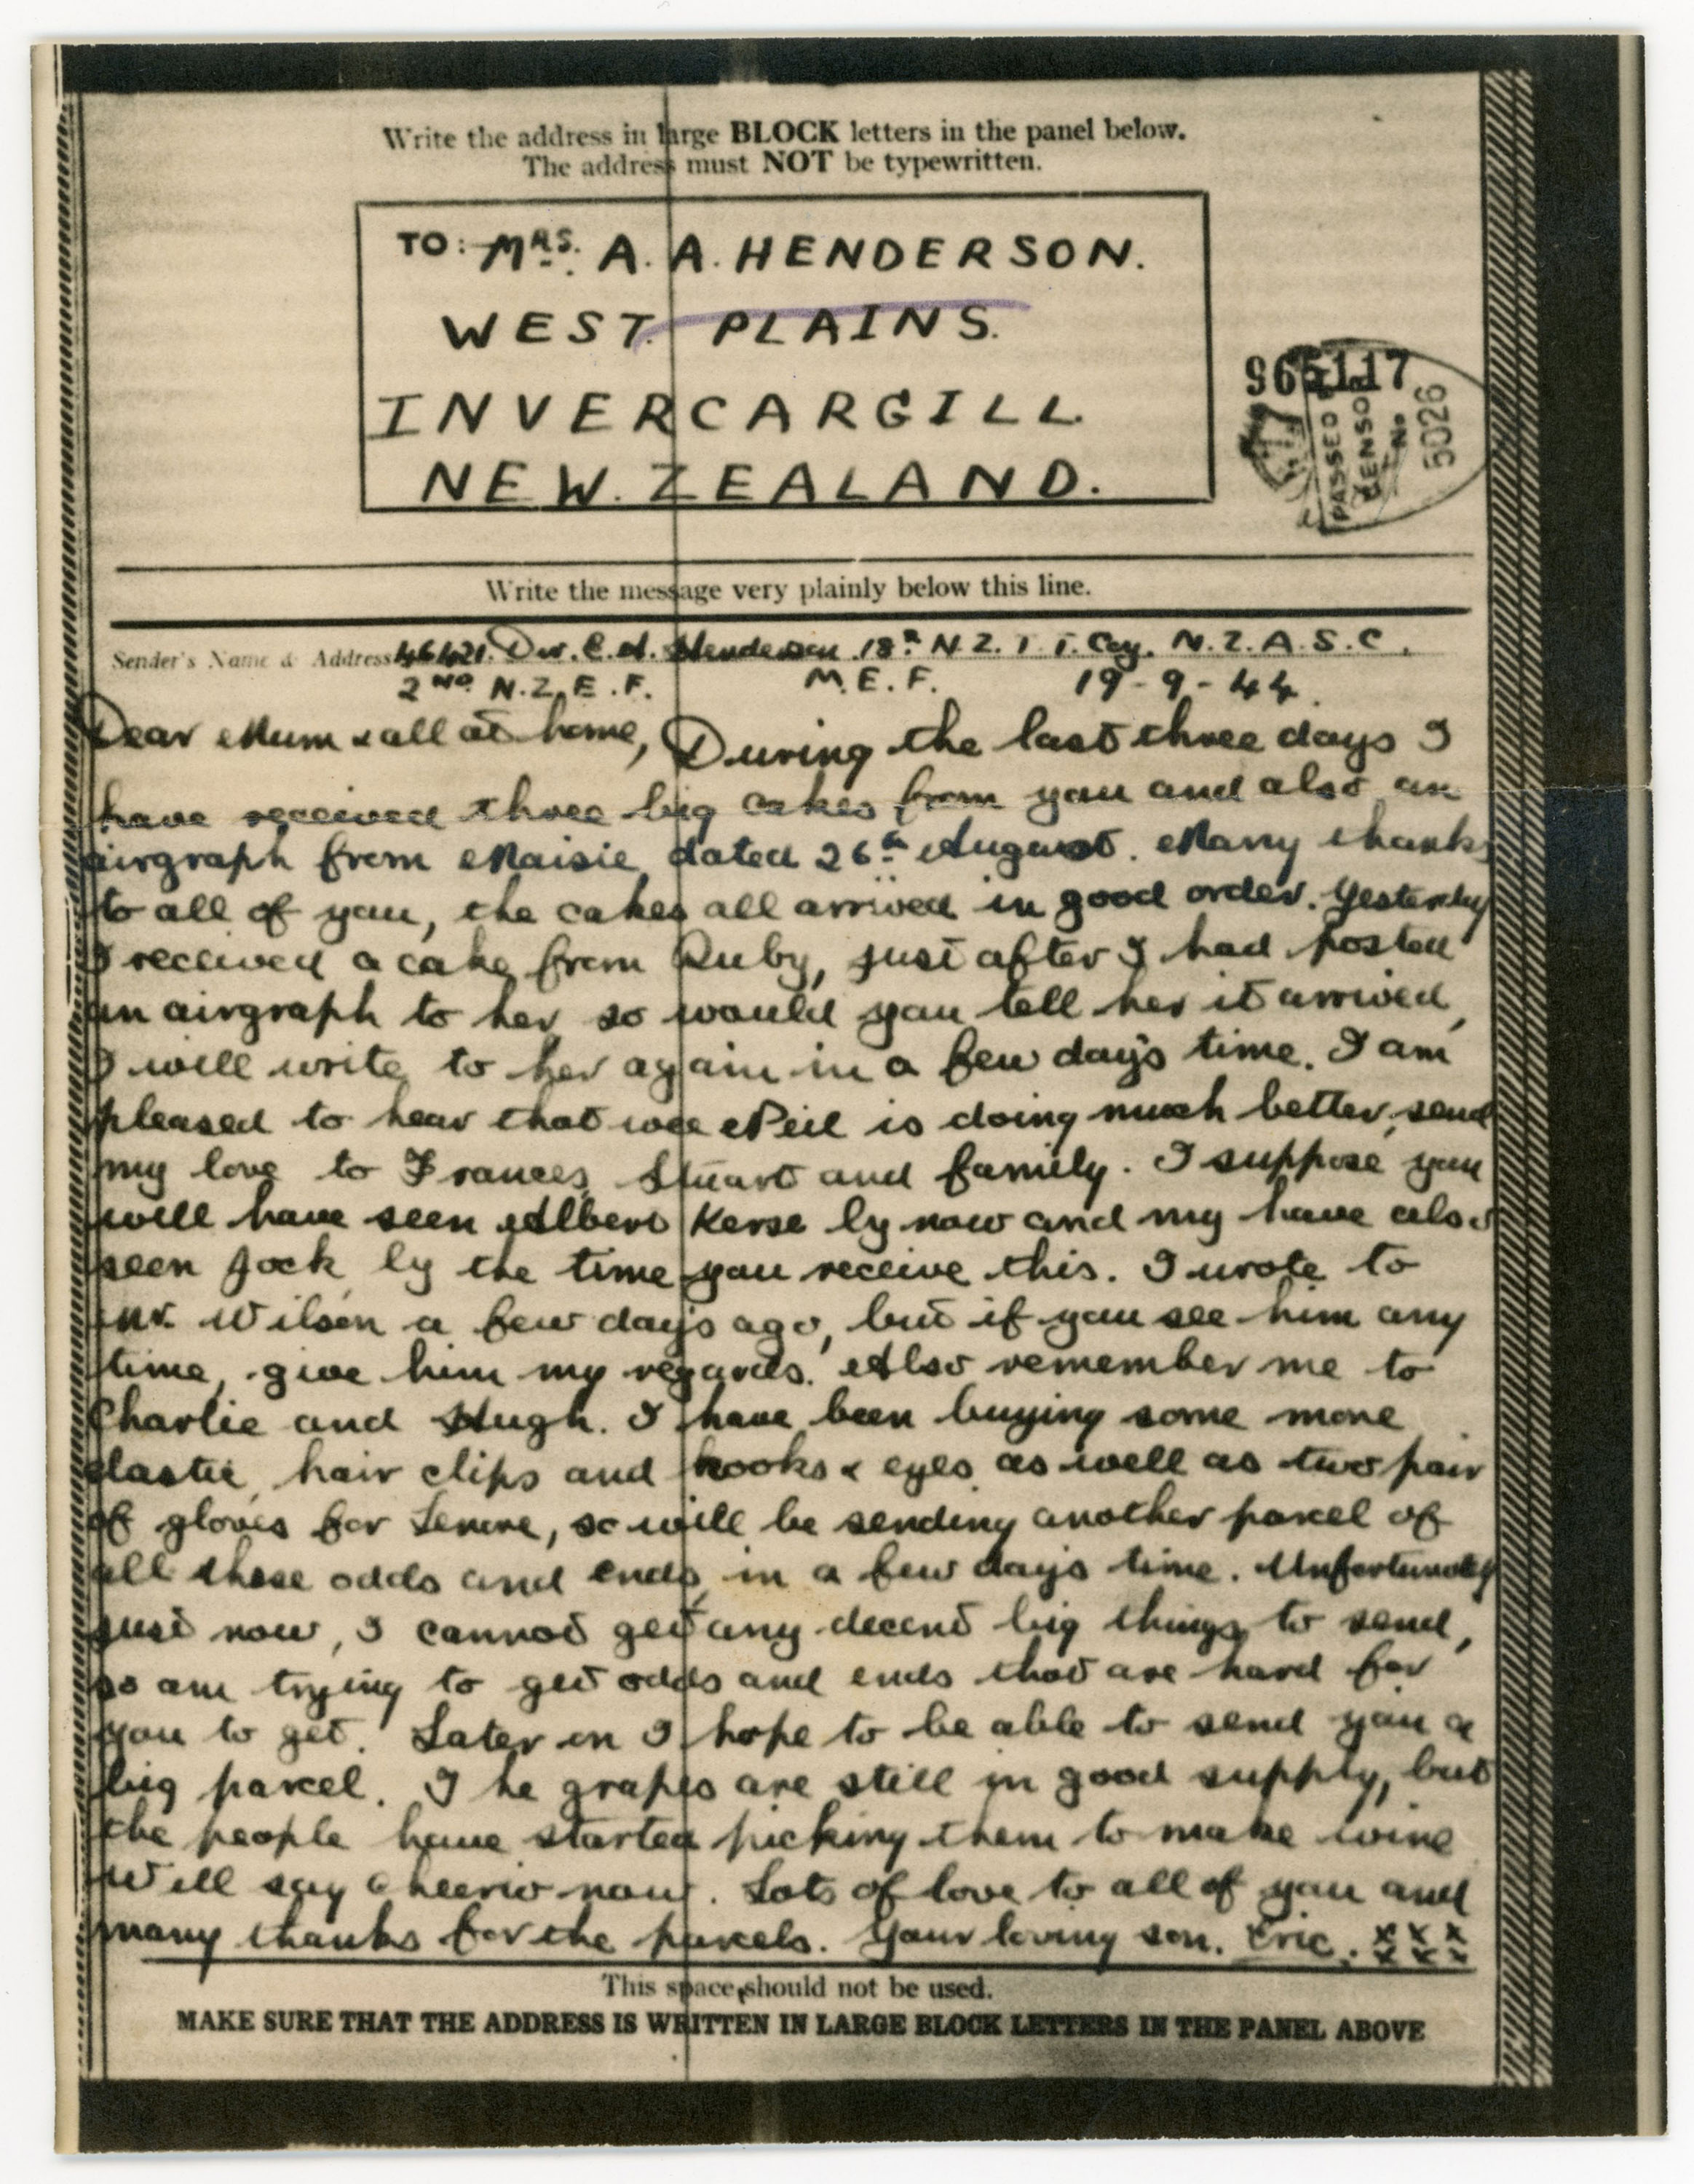 Write the address in large BLOCK letters in the panel below.
The address must NOT be typewritten.
TO: MRS. A. A. HENDERSON.
WEST. PLAINS.
INVERCARGILL.
NEW. ZEALAND.
965117
PASSED
CENSOR
No
5026
Write the message very plainly below this line.
Sender's Name & Address 46421. Dvr. E. A. Henderson 18th N.Z. T. T. Coy. N.Z.A.S.C.
2ND N.Z.E.F. M.E.F. 19-9-44.
Dear Mum & all at home, During the last three days I
have received three big cakes from you and also an
airgraph from Maisie dated 26th August. Many thanks
to all of you, the cakes all arrived in good order. Yesterday
I received a cake from Ruby, just after I had posted
an airgraph to her so would you tell her it arrived,
I will write to her again in a few days time. I am
pleased to hear that wee Neil is doing much better, send
my love to Frances, Stuart and family. I suppose you
will have seen Albert Kerse by now and my have also
seen Jock by the time you receive this. I wrote to
Mr. Wilson a few days ago, but if you see him any
time, give him my regards. Also remember me to
Charlie and Hugh. I have been buying some more
elastic, hair clips and hooks & eyes as well as two pair
of gloves for Lenore, so will be sending another parcel of
all these odds and ends in a few days time. Unfortunately
just now, I cannot get any decent big things to send,
so am trying to get odds and ends that are hard for
you to get. Later on I hope to be able to send you a
big parcel. The grapes are still in good supply, but
the people have started picking them to make wine
Will say cheerio now. Lots of love to all of you and
many thanks for the parcels. Your loving son. Eric. x x x
x x x
This space should not be used.
MAKE SURE THAT THE ADDRESS IS WRITTEN IN LARGE BLOCK LETTERS IN THE PANEL ABOVE